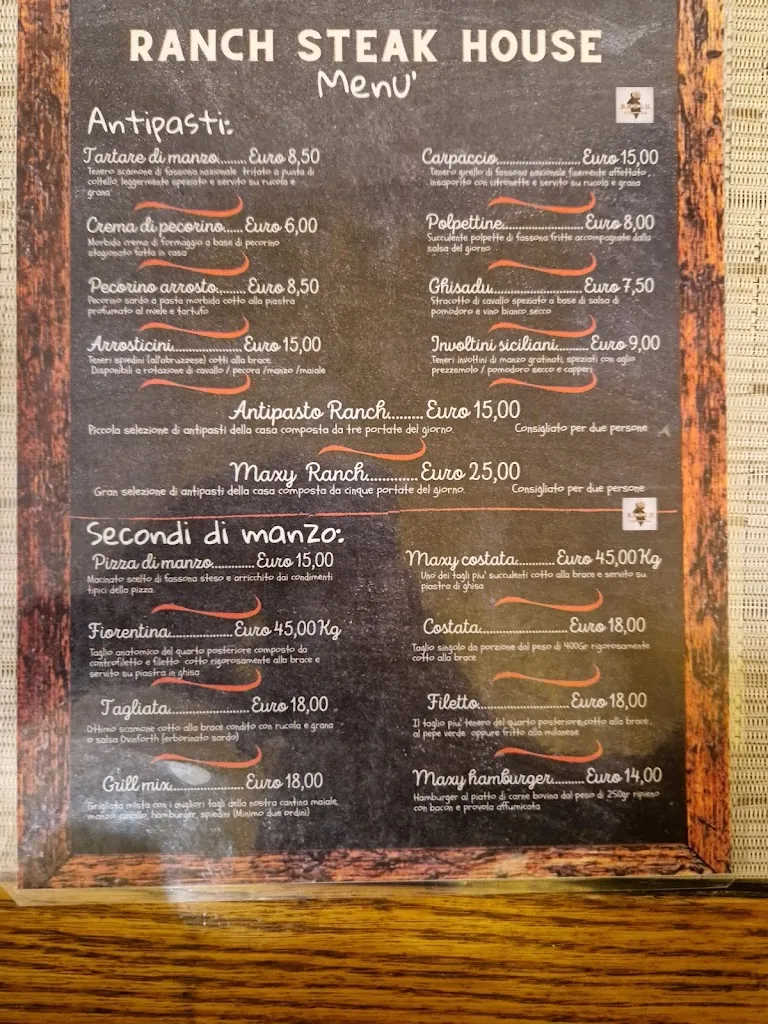 RANCH STEAK HOUSE
Menu'
Antipasti:
Tartare di manzo........ Euro 8,50
Tenero scamone di fassona nazionale tritato a punta di
coltello, leggermente speziato e servito su rucola e
grana'
Carpaccio........................ Euro 15,00
Tenero girello di fassona nazionale finemente affettato,
insaporito con citronette e servito su rucola e grana
Crema di pecorino..... Euro 6,00
Morbida crema di formaggio a base di pecorino
stagionato fatta in casa
Polpettine........................ Euro 8,00
Succulente polpette di fassona fritte accompagnate dalla
salsa del giorno
Pecorino arrosto....... Euro 8,50
Pecorino sardo a pasta morbida cotto alla piastra
profumato al miele e tartufo
Ghisadu......................... Euro 7,50
Stracotto di cavallo speziato a base di salsa di
pomodoro e vino bianco secco
Arrosticini.................... Euro 15,00
Teneri spiedini (all'abruzzese) cotti alla brace.
Disponibili a rotazione di cavallo / pecora /manzo /maiale
Involtini siciliani......... Euro 9,00
Teneri involtini di manzo gratinati, speziati con aglio
prezzemolo / pomodoro secco e capperi
Antipasto Ranch......... Euro 15,00
Piccola selezione di antipasti della casa composta da tre portate del giorno. Consigliato per due persone
Maxy Ranch............ Euro 25,00
Gran selezione di antipasti della casa composta da cinque portate del giorno. Consigliato per due persone
Secondi di manzo:
Pizza di manzo............ Euro 15,00
Macinato scelto di fassona steso e arricchito dai condimenti
tipici della pizza.
Maxy costata............ Euro 45,00 Kg
Uno dei tagli piu' succulenti cotto alla brace e servito su
piastra di ghisa
Fiorentina.................... Euro 45,00 Kg
Taglio anatomico del quarto posteriore composto da
controfiletto e filetto cotto rigorosamente alla brace e
servito su piastra in ghisa
Costata......................... Euro 18,00
Taglio singolo da porzione dal peso di 400Gr rigorosamente
cotto alla brace
Tagliata........................ Euro 18,00
Ottimo scamone cotto alla brace condito con rucola e grana
o salsa Ovinforth (erborinato sardo)
Filetto........................... Euro 18,00
Il taglio piu' tenero del quarto posteriore,cotto alla brace,
al pepe verde oppure fritto alla milanese
Grill mix...................... Euro 18,00
Grigliata mista con i migliori tagli della nostra cantina maiale,
manzo, cavallo, hamburger, spiedini (Minimo due ordini)
Maxy hamburger.......... Euro 14,00
Hamburger al piatto di carne bovina dal peso di 250gr ripieno
con bacon e provola affumicata